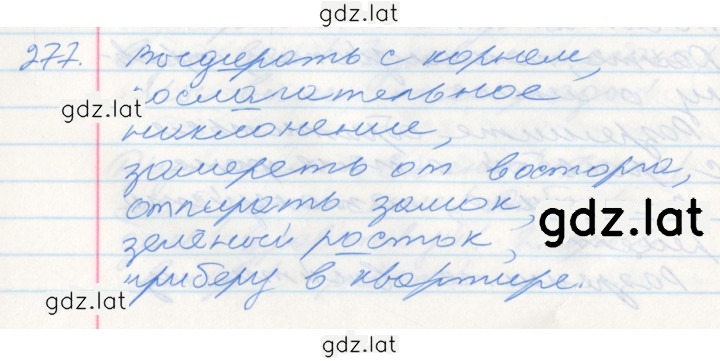 gdz.lat
277. Выдирать с корнем,
gdz.lat
сослагательное
наклонение,
замереть от восторга,
отпирать замок,
gdz.lat
зелёный росток,
приберу в квартире.
gdz.lat
gdz.lat